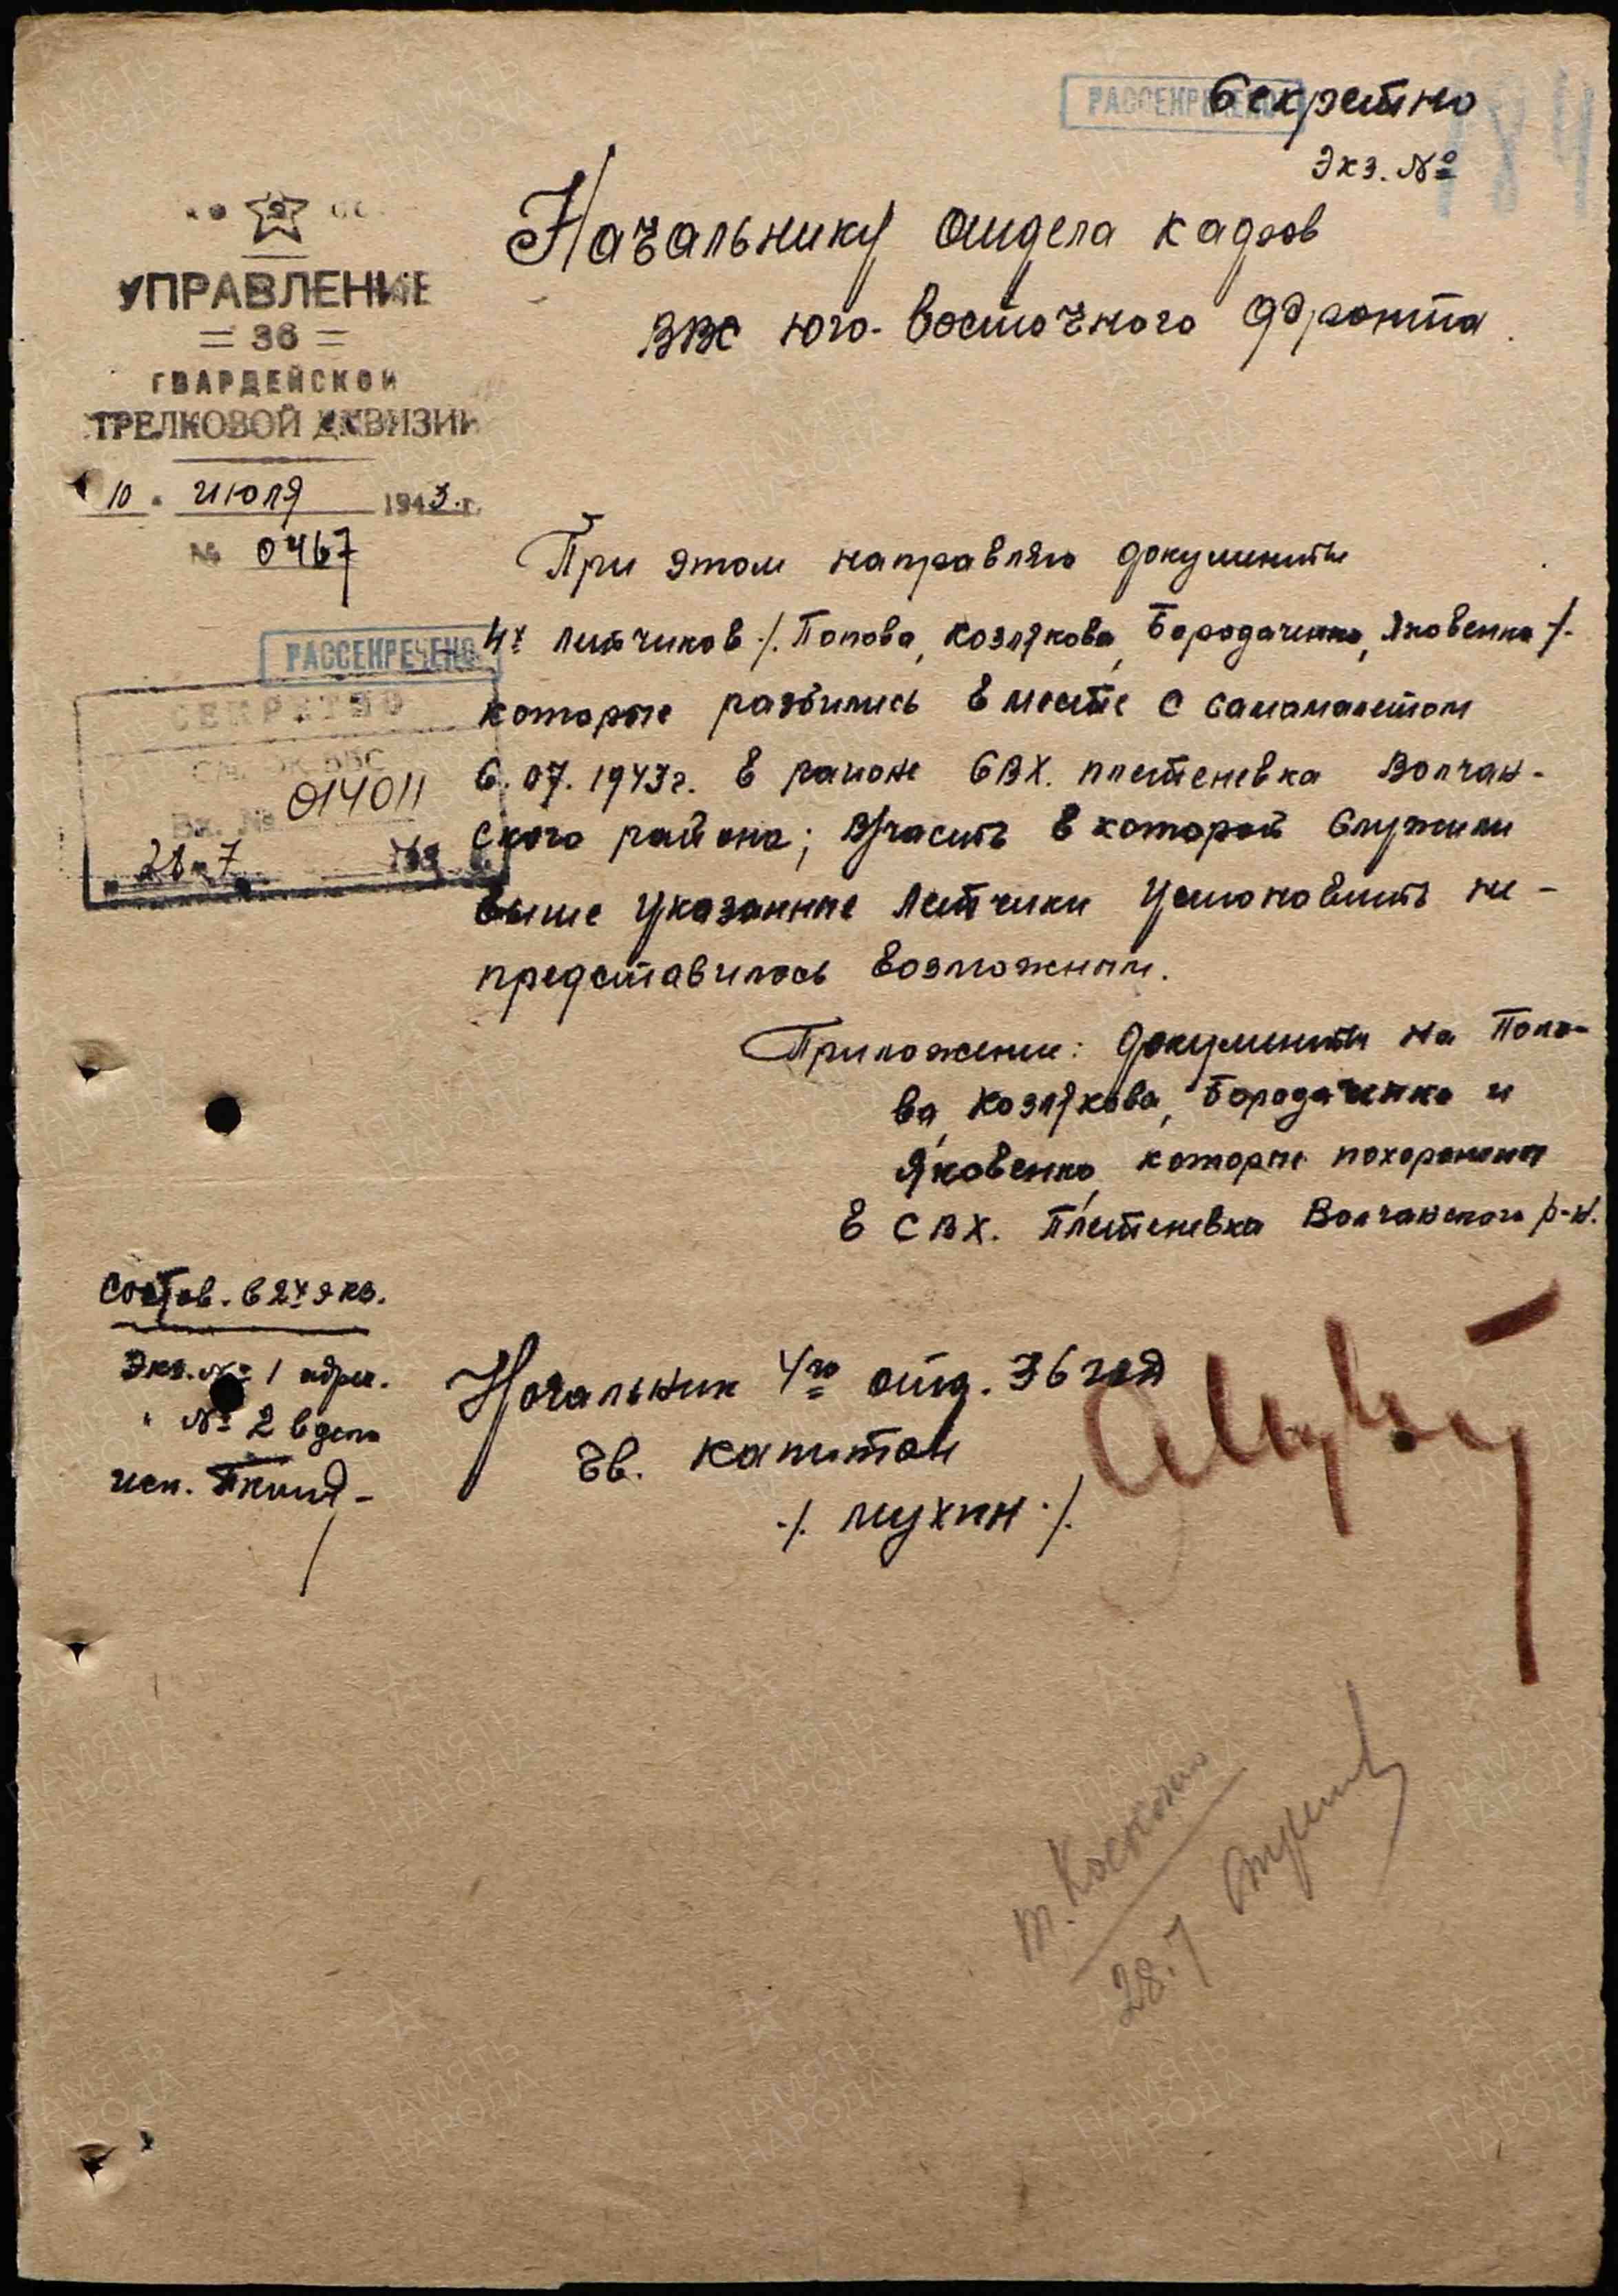 РАССЕКРЕЧЕНО
Секретно
Экз. №
184
Начальнику отдела кадров
ВВС Юго-Восточного Фронта.
УПРАВЛЕНИЕ
= 36 =
ГВАРДЕЙСКОЙ
СТРЕЛКОВОЙ ДИВИЗИИ
"10" июля 1943 г.
№ 0467
При этом направляю документы
4х летчиков /. Попова, Козлякова, Бородаченко, Яковенко ./.
которые разбились вместе с самалетом
6.07.1943г. в районе СВХ. Плетеневка Волчан-
ского района; Часть в которой служили
выше указанные летчики установить не-
представилось возможным.
РАССЕКРЕЧЕНО
СЕКРЕТНО
ВВС
Вх. № 014011
"28" 7
Приложение: Документы на Попо-
ва, Козлякова, Бородаченко и
Яковенко, которые похоронены
в СВХ. Плетеневка Волчанского р-н.
Состав. в 2х экз.
Экз. № 1 адрес.
" № 2 в дело
исп.
Начальник 4го отд. 36 гсд
гв. капитан
./. Мухин ./.
28.7
ПАМЯТЬ
НАРОДА